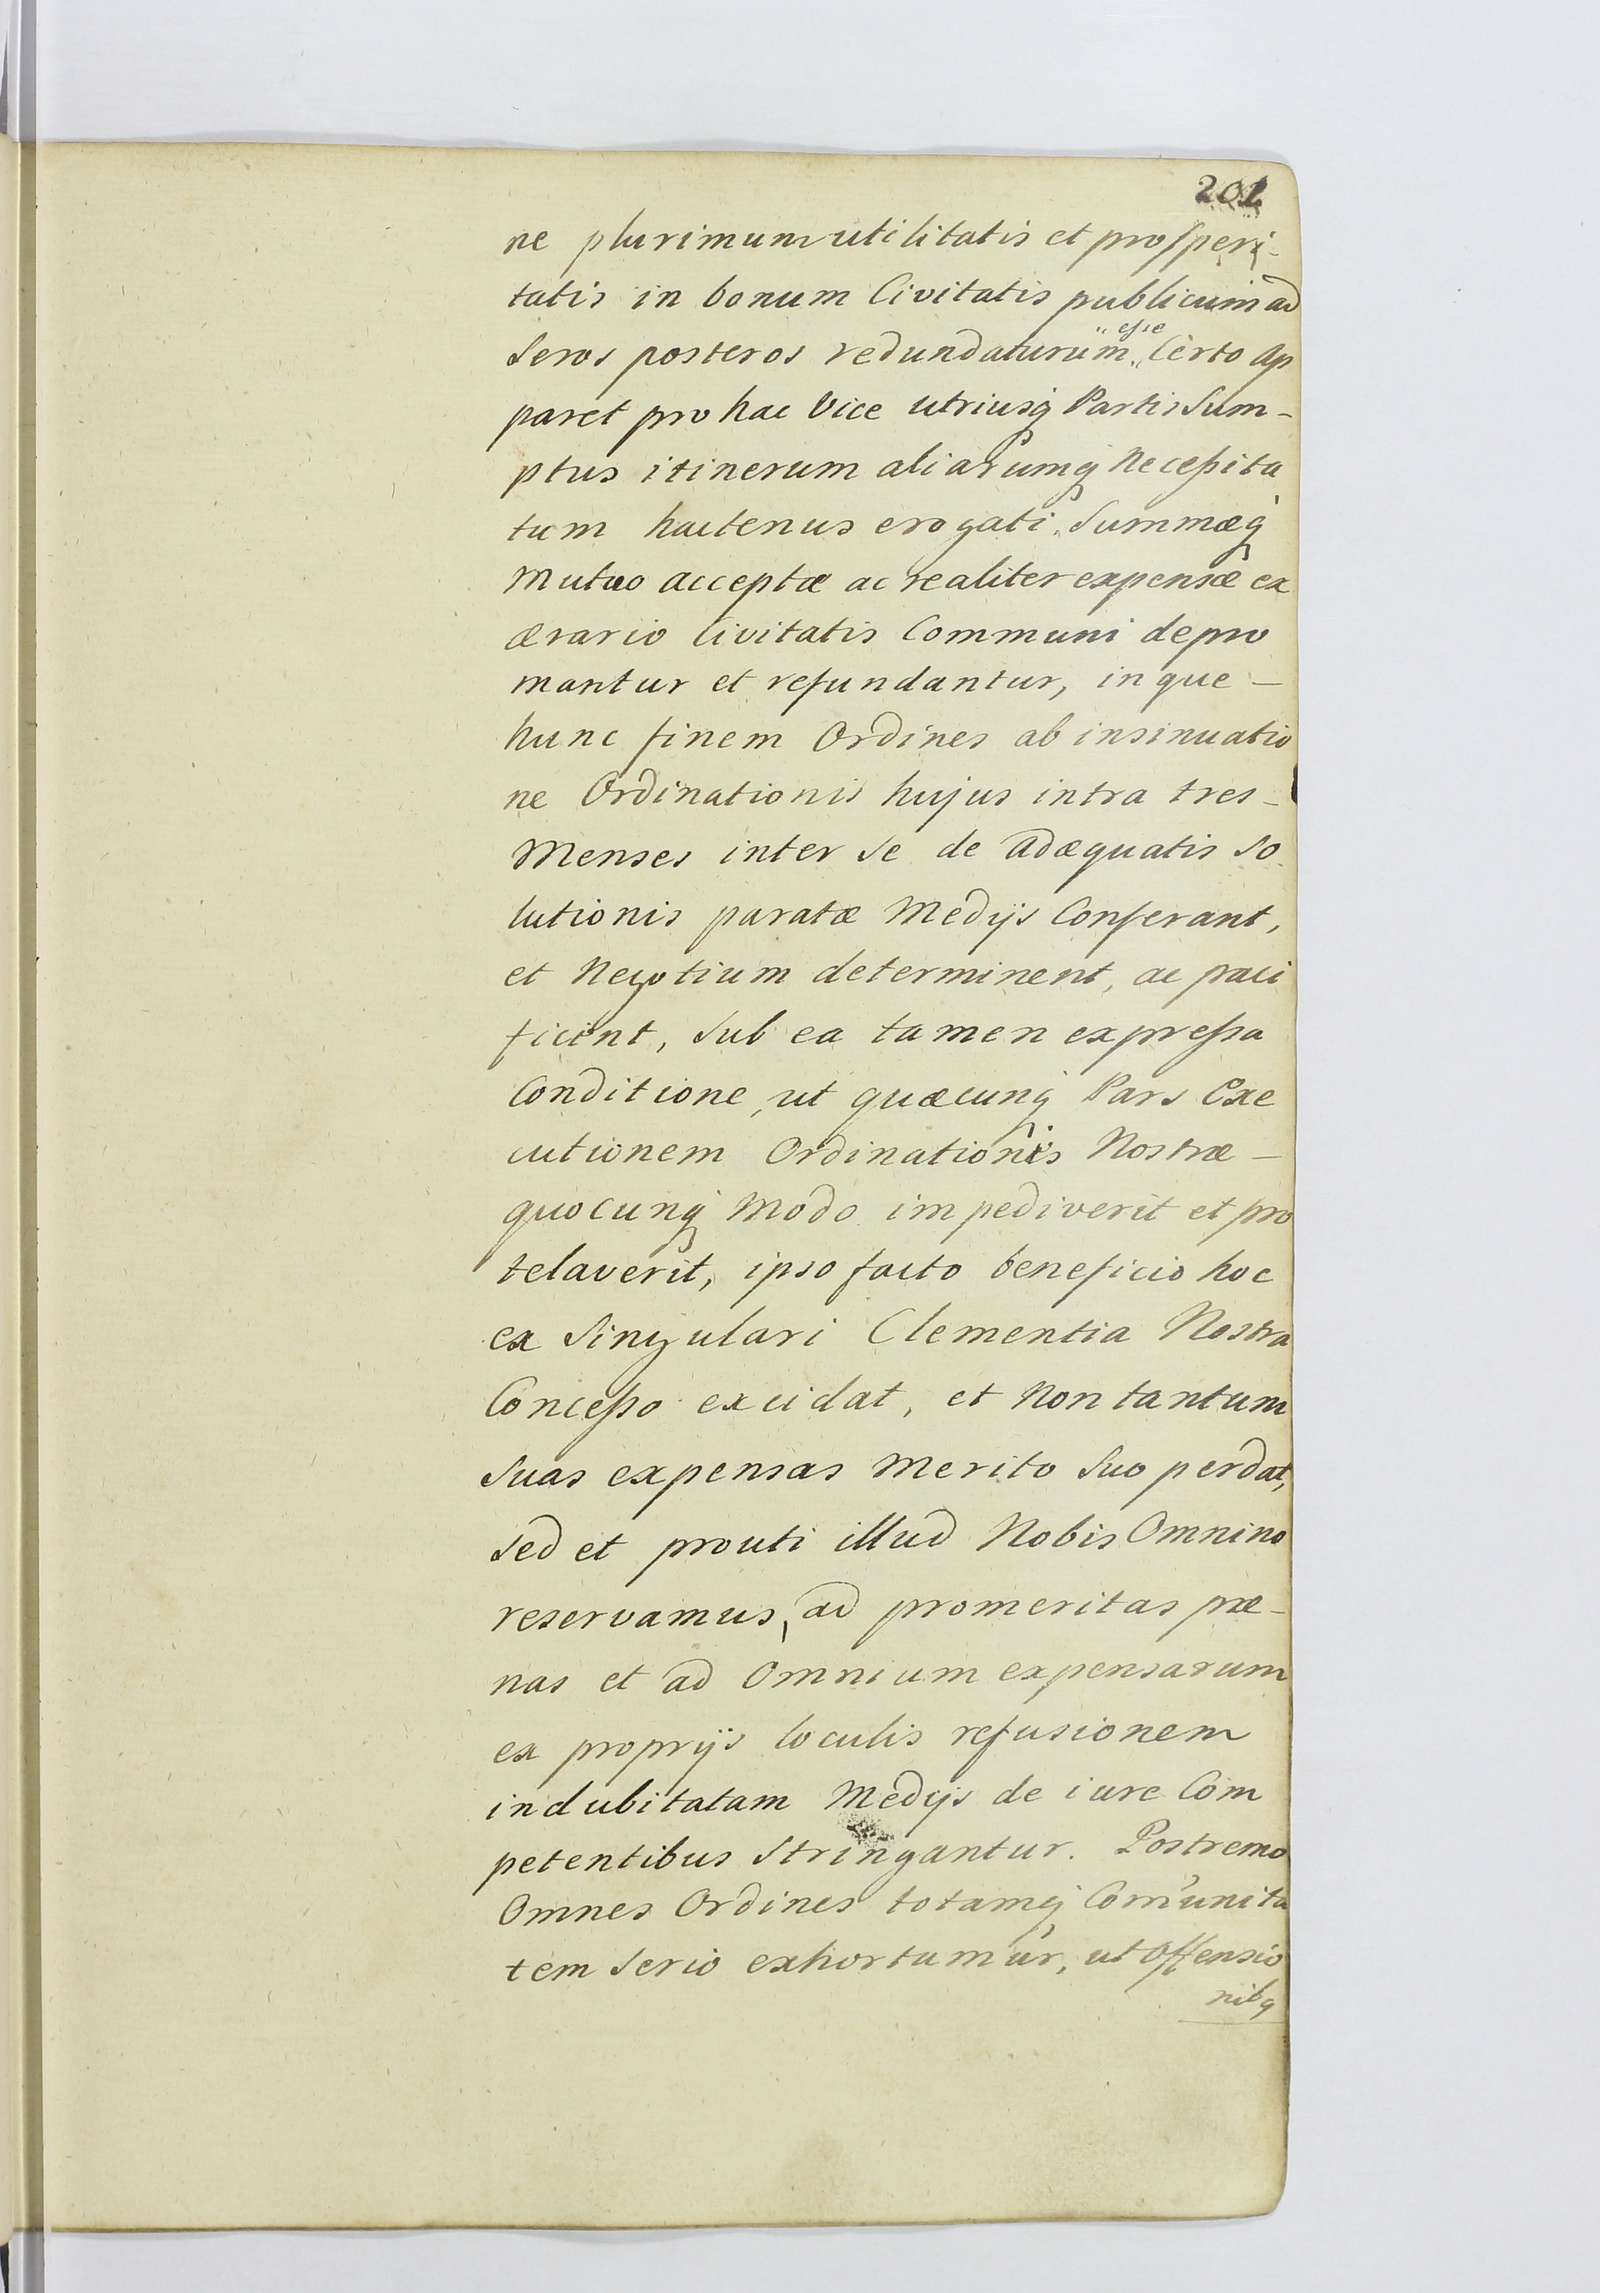 201
ne plurimum utilitatis et prosperi-
tatis in bonum Civitatis publicum ad
seros posteros redundaturum esse certo ap
paret pro hac vice utriusq Partis Sum-
ptus itinerum aliarumq Necessita
tum hactenus erogati, Summæq
mutuo acceptæ ac realiter expensæ ex
ærario Civitatis Communi depro
mantur et refundantur, inque-
hunc finem Ordines ab insinuatio
ne Ordinationis hujus intra tres-
Menses inter se de adæquatis so
lutionis paratæ Medijs Conferant,
et Negotium determinent, ac paci
ficent, sub ea tamen expressa
Conditione, ut quæcunq Pars Exe
cutionem Ordinationis Nostræ-
quocunq Modo impediverit et pro
telaverit, ipso facto beneficio hoc
ex Singulari Clementia Nostra
Concesso excidat, et Non tantum
Suas expensas Merito Suo perdat,
Sed et prouti illud Nobis Omnino
reservamus, ad promeritas pæ-
nas et ad Omnium expensarum
ex proprijs loculis refusionem
indubitatam Medijs de iure Com
petentibus Stringantur. Postremo
Omnes Ordines totamq Com̃unita
tem Serio exhortamur, ut Offensio
nibq